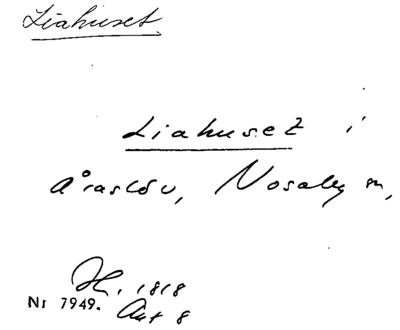 Liahuset
Liahuset i
Åraslöv, Nosaby sn,
H. 1818
Nr 7949. Akt 8